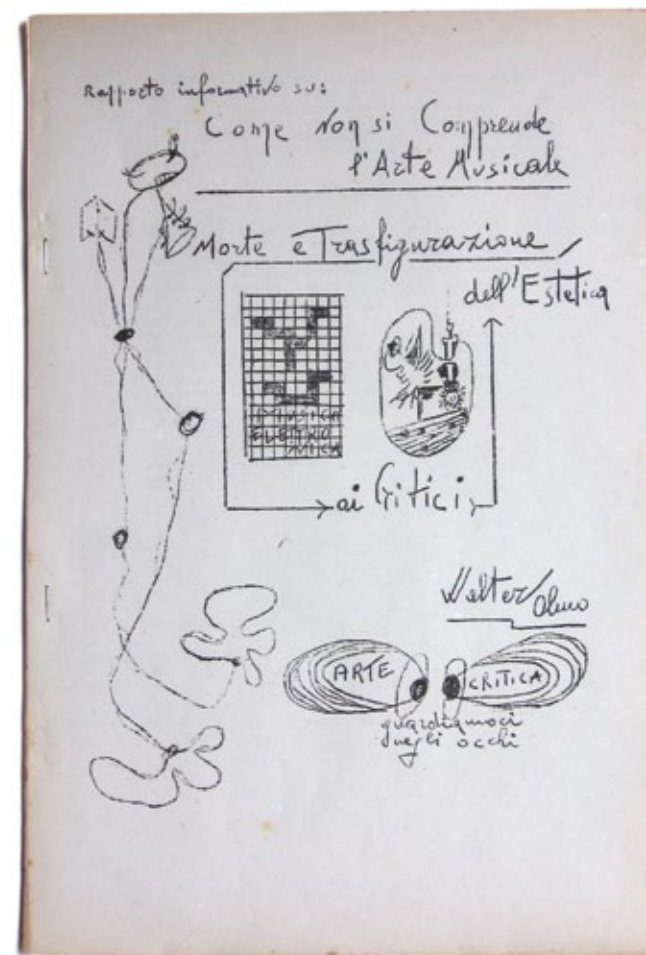 Rapporto informativo su:
Come Non si Comprende
l'Arte Musicale
Morte e Trasfigurazione
dell'Estetica
MUSICA
ELETTRO
NICA
ai Critici
Walter Olmo
ARTE
CRITICA
guardiamoci
negli occhi